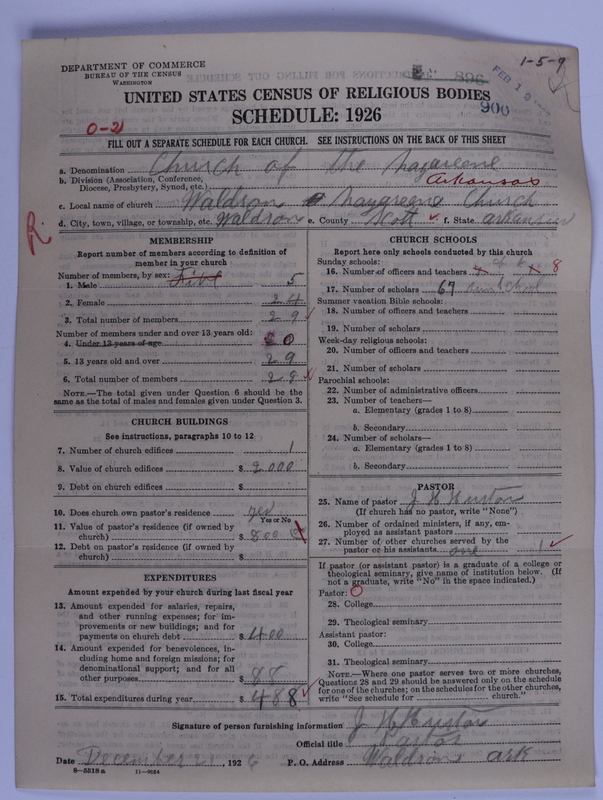 DEPARTMENT OF COMMERCE
BUREAU OF THE CENSUS
WASHINGTON
1-5-9
896
FEB 10
900
UNITED STATES CENSUS OF RELIGIOUS BODIES
SCHEDULE: 1926
0-21
FILL OUT A SEPARATE SCHEDULE FOR EACH CHURCH. SEE INSTRUCTIONS ON THE BACK OF THIS SHEET
a. Denomination Church of the Nazareene
b. Division (Association, Conference, Diocese, Presbytery, Synod, etc.) Arkansas
c. Local name of church Waldron Nazareene Church
d. City, town, village, or township, etc. Waldron e. County Scott f. State arkansas
R.
MEMBERSHIP
Report number of members according to definition of
member in your church
Number of members, by sex: Five
1. Male 5
2. Female 24
3. Total number of members 29
Number of members under and over 13 years old:
4. Under 13 years of age 0
5. 13 years old and over 29
6. Total number of members 29
NOTE.—The total given under Question 6 should be
same as the total of males and females given under Question 3.
CHURCH BUILDINGS
See instructions, paragraphs 10 to 12
7. Number of church edifices 1
8. Value of church edifices $ 2000
9. Debt on church edifices $
10. Does church own pastor's residence yes
Yes or No
11. Value of pastor's residence (if owned by
church) $ 800
12. Debt on pastor's residence (if owned by
church) $
EXPENDITURES
Amount expended by your church during last fiscal year
13. Amount expended for salaries, repairs,
and other running expenses; for im-
provements or new buildings; and for
payments on church debt $ 400
14. Amount expended for benevolences, in-
cluding home and foreign missions; for
denominational support; and for all
other purposes $ 88
15. Total expenditures during year $ 488
CHURCH SCHOOLS
Report here only schools conducted by this church
Sunday schools:
16. Number of officers and teachers 8
17. Number of scholars 67
Summer vacation Bible schools:
18. Number of officers and teachers
19. Number of scholars
Week-day religious schools:
20. Number of officers and teachers
21. Number of scholars
Parochial schools:
22. Number of administrative officers
23. Number of teachers—
a. Elementary (grades 1 to 8)
b. Secondary
24. Number of scholars—
a. Elementary (grades 1 to 8)
b. Secondary
PASTOR
25. Name of pastor J H Huston
(If church has no pastor, write "None")
26. Number of ordained ministers, if any, em-
ployed as assistant pastors
27. Number of other churches served by the
pastor or his assistants one 1
If pastor (or assistant pastor) is a graduate of a college or
theological seminary, give name of institution below. (If
not a graduate, write "No" in the space indicated.)
Pastor: O
28. College
29. Theological seminary
Assistant pastor:
30. College
31. Theological seminary
NOTE.—Where one pastor serves two or more churches,
Questions 28 and 29 should be answered only on the schedule
for one of the churches; on the schedules for the other churches,
write "See schedule for church."
Signature of person furnishing information J H Huston
Official title Pastor
Date December 21, 1926 P. O. Address Waldron ark
8—5518 a 11—9124